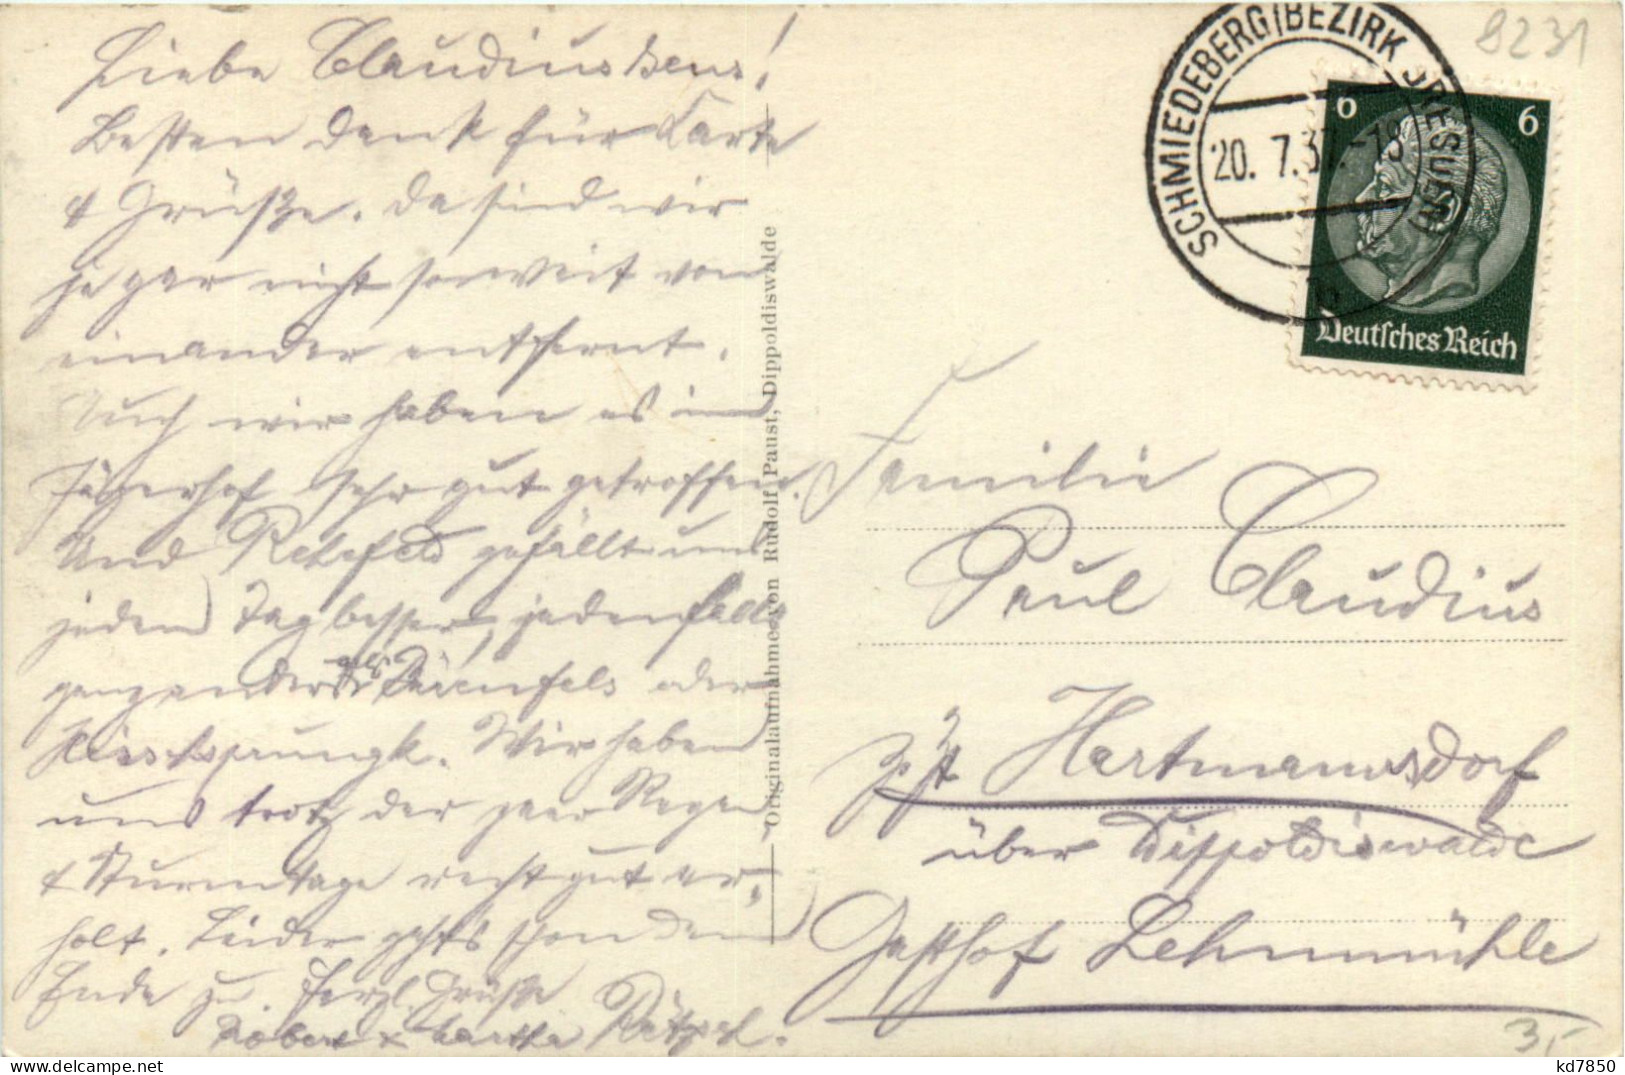 Liebe Claudiussens!
Besten Dank für Karte
& Grüße. Da sind wir
ja gar nicht so weit von
einander entfernt.
Auch wir haben es im
Jägerhof sehr gut getroffen.
Und Rehefeld gefällt uns
jeden Tag besser, jedenfalls
ganz anders als Bärenfels oder
Hirschsprungk. Wir haben
uns trotz der paar Regen
& Sturmtage recht gut er,
holt. Leider gehts schon dem
Ende zu. Herzl. Grüße
Robert & Martha
Originalaufnahme von Rudolf Paust, Dippoldiswalde
8231
SCHMIEDEBERG (BEZIRK DRESDEN)
20. 7.37.-18
6 6
Deutsches Reich
Familie
Paul Claudius
zzt Hartmannsdorf
über Dippoldiswalde
Gasthof Lehnmühle
3,-
kd7850